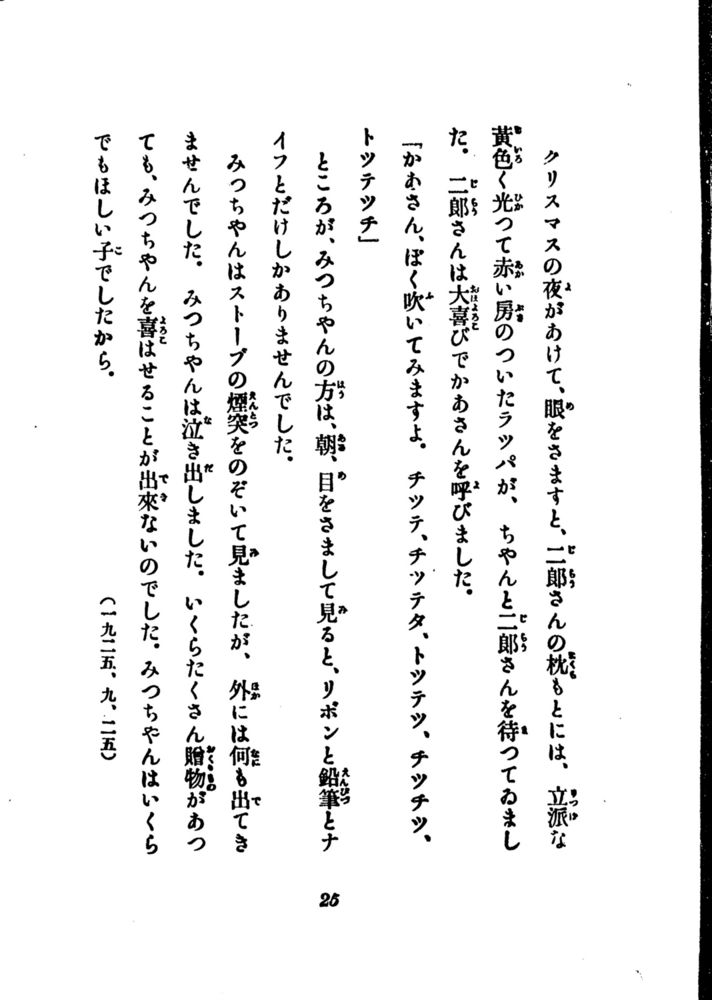 クリスマスの夜があけて、眼をさますと、二郎さんの枕もとには、立派な
黄色く光つて赤い房のついたラッパが、ちやんと二郎さんを待つてゐまし
た。二郎さんは大喜びでかあさんを呼びました。
「かあさん、ぼく吹いてみますよ。チッテ、チッテタ、トツテツ、チツチツ、
トツテツチ」
ところが、みつちやんの方は、朝、目をさまして見ると、リボンと鉛筆とナ
イフとだけしかありませんでした。
みつちやんはストーブの煙突をのぞいて見ましたが、外には何も出てき
ませんでした。みつちやんは泣き出しました。いくらたくさん贈物があつ
ても、みつちやんを喜はせることが出來ないのでした。みつちやんはいくら
でもほしい子でしたから。
（一九二五、九、二五）
25